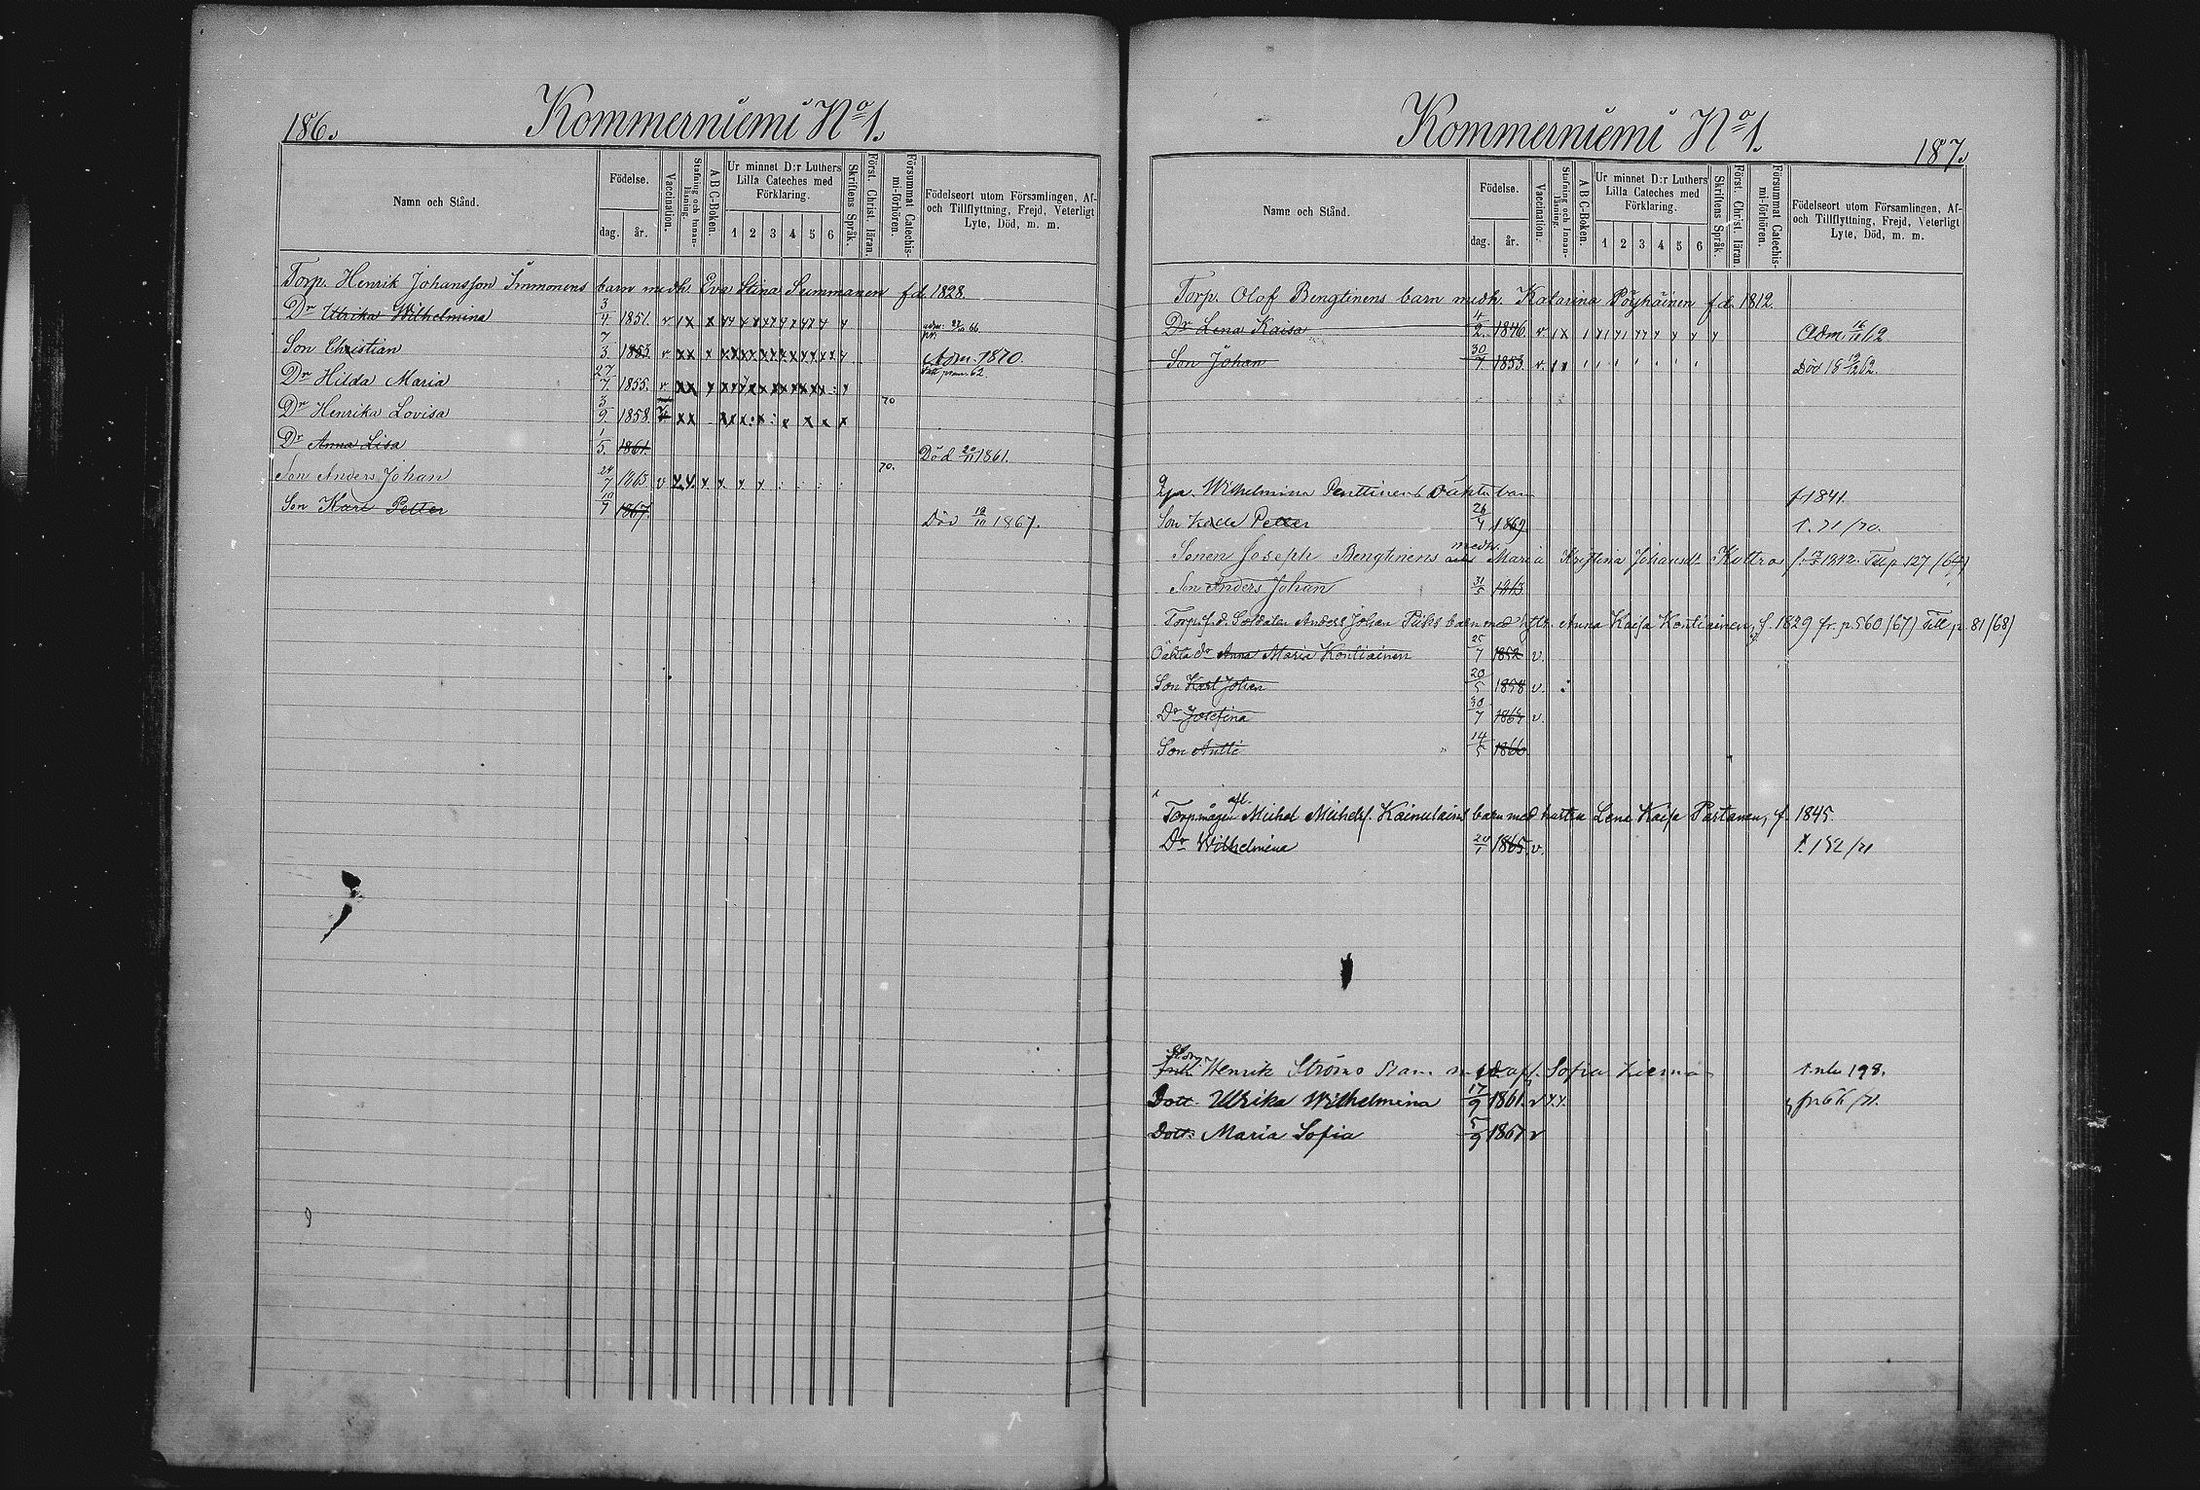 186.
Kommerniemi No 1.
Namn och Stånd.
Födelse.
dag.
år.
Vaccination.
Stafning och Innanläsning.
A B C-Boken.
Ur minnet D:r Luthers Lilla Cateches med Förklaring.
1 2 3 4 5 6
Skriftens Språk.
Först. Christ. läran.
Försummat Catechismi-förhören.
Födelseort utom Församlingen, Af- och Tillflyttning, Frejd, Veterligt Lyte, Död, m. m.
Torp. Henrik Johansson Immonens barn medh. Eva Stina Summanen f.d. 1828.
Dr Ulrika Wilhelmina 3/4 1851. v
Son Christian 7/3 1853. v Adm. 1870.
Dr Hilda Maria 27/7 1855. v
Dr Henrika Lovisa 3/9 1858. 70
Dr Anna Lisa 1/5 1861. Död 1861.
Son Anders Johan 24/7 1865 v 70.
Son Karl Petter 10/9 1867. Död 19/10 1867.
Kommerniemi No 1.
187.
Namn och Stånd.
Födelse.
dag.
år.
Vaccination.
Stafning och Innanläsning.
A B C-Boken.
Ur minnet D:r Luthers Lilla Cateches med Förklaring.
1 2 3 4 5 6
Skriftens Språk.
Först. Christ. läran.
Försummat Catechismi-förhören.
Födelseort utom Församlingen, Af- och Tillflyttning, Frejd, Veterligt Lyte, Död, m. m.
Torp. Olof Bengtinens barn medh. Katarina Pöyhöinen f.d. 1812.
Dr Lena Kaisa 4/2 1846 v Adm. 62.
Son Johan 30/7 1853. v. Död 62.
Wilhelmina Penttinens oäkta barn f. 1841.
Son Kalle Petter 26/4 1869 t. 71/70.
Sonen Joseph Bengtinens medh. Maria Kristina Johansdr f. 1842. Till p. 127/64
Son Anders Johan 31/5 1863
Torp. f.d. Soldaten Anders Johan Piiks barn med hustr. Anna Kaisa Kontiainen, f. 1829 fr. p. 560/67) Till p. 81/68)
Oäkta dr Anna Maria Kontiainen 25/7 1852 v.
Son Karl Johan 20/5 1858 v.
Dr Josefina 30/7 1864 v.
Son Antti 14/5 1866
Torpmågen afl. Michel Michelss. Kainulains barn med hustru Lena Kaisa Partanen, f. 1845.
Dr Wilhelmina 24/1 1865 v. t. 152/71
Henrik Ströms barn med afl. Sofia 198.
Dott. Ulrika Wilhelmina 17/9 1861. v fr. 66/71.
Dott. Maria Sofia 5/9 1867 v